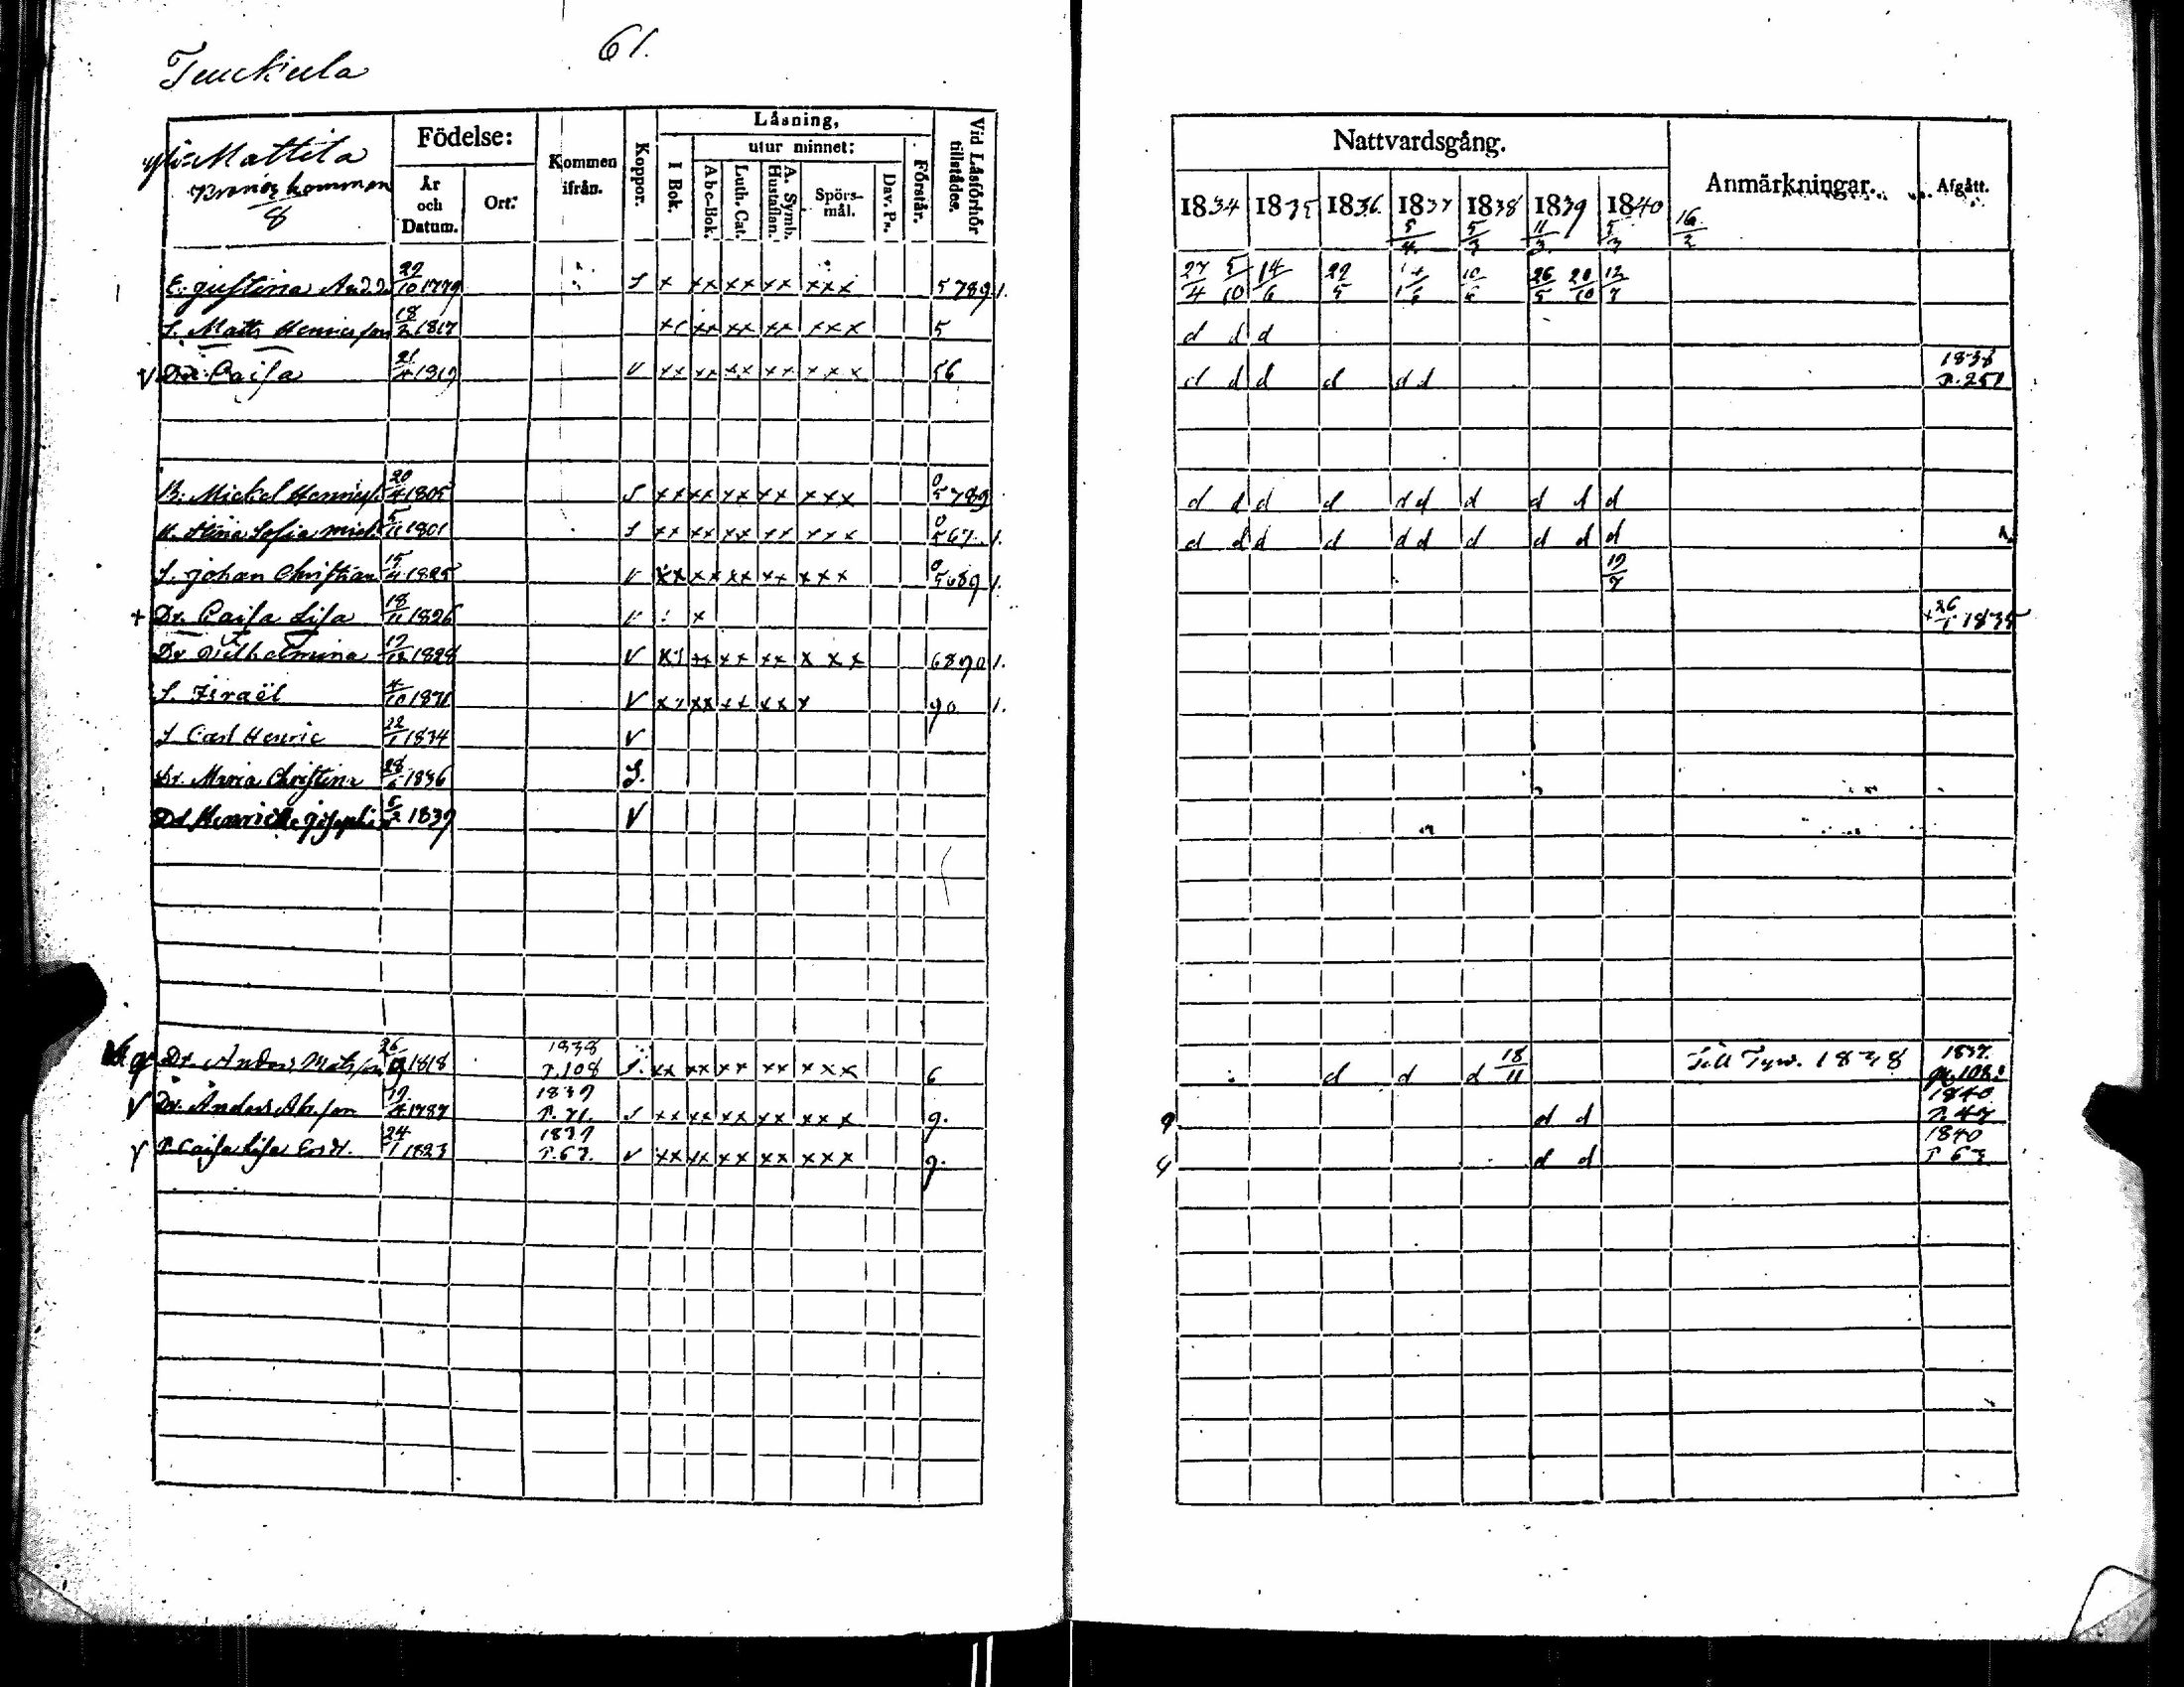 61.
Födelse:
Kommen ifrån.
Koppor.
Läsning,
I Bok.
utur minnet:
Abc-Bok.
Luth. Cat.
A. Symb. Hustaflan.
Spörsmål.
Dav. Ps.
Förstår.
Vid Läsförhör tillstädes.
År och Datum.
Ort:
Mattila
8
E. 1779 S x xx xx xx xxx 5 789 1.
S. Matts Henricsson 18/2 1817 xx xx xx xxx 5
Dr. Caisa 21/4 1819 V xx xx xx xx xxx 56
B. Mickel 20/4 1805 S xx xx xx xx xxx 0 5 789
H. Stina Sofia 5/11 1801 S xx xx xx xx xxx 0 567 1.
S. Johan Christian 15/4 1825 V xx xx xx xx xxx 0 5689 1.
+ Dr. Caisa Lisa 18/11 1826 x
Dr Vilhelmina 1828 V xx xx xx xxx 6890 1.
S. Israël V xx xx xx x 90 1.
S Carl Henric 1834 V
Dr. Maria Christina 1836 S.
1839 V
Dr. Anders Matsson 26 1818 1838 P.108 S. xx xx xx xx xxx 6
V Dr. Anders 1787 1839 P. 71. S xx xx xx xx xxx 9.
Caisa Lisa 24/1 1823 1839 P.67. V xx xx xx xx xxx 9.
Nattvardsgång.
Anmärkningar.
Afgått.
1834 1835 1836 1837 1838 1839 1840
5/4 5/3 11/3 5/3 16/2
27/4 5/10 14/6 22/5 10/6 26/5 20/10 12/7
d d d
d d d d d d 1838 P. 251
d d d d d d d d d d
d d d d d d d d d d
19/7
+ 26/1 1835
d d d 18/11 Till Tyrv. 1838 1837 108
d d 1840 P. 47
d d 1840 P 63